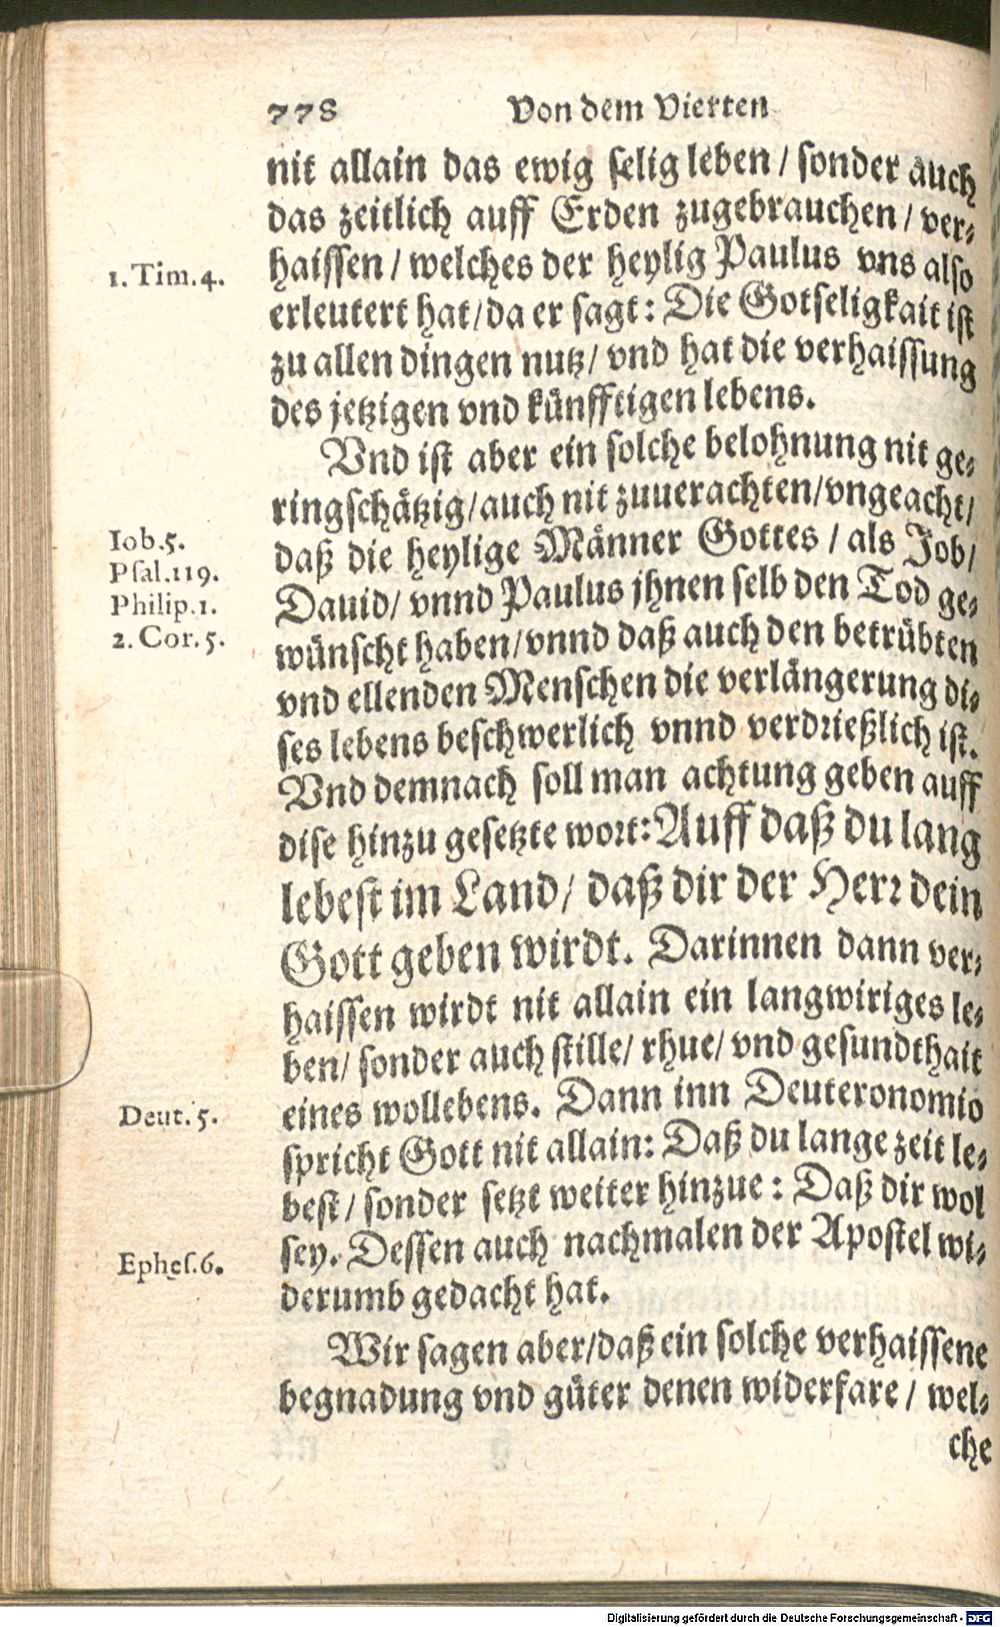 778 Von dem Vierten
nit allain das ewig selig leben / sonder auch
das zeitlich auff Erden zugebrauchen / ver-
1. Tim. 4. haissen / welches der heylig Paulus vns also
erleutert hat / da er sagt: Die Gotseligkait ist
zu allen dingen nutz / vnd hat die verhaissung
des jetzigen vnd künfftigen lebens.
Vnd ist aber ein solche belohnung nit ge-
ringschätzig / auch nit zuuerachten / vngeacht /
Iob. 5. daß die heylige Männer Gottes / als Job /
Psal. 119. Dauid / vnnd Paulus jhnen selb den Tod ge-
Philip. 1. wünscht haben / vnnd daß auch den betrübten
2. Cor. 5. vnd ellenden Menschen die verlängerung di-
ses lebens beschwerlich vnnd verdrießlich ist.
Vnd demnach soll man achtung geben auff
dise hinzu gesetzte wort: Auff daß du lang
lebest im Land / daß dir der Herr dein
Gott geben wirdt. Darinnen dann ver-
haissen wirdt nit allain ein langwiriges le-
ben / sonder auch stille / rhue / vnd gesundthait
Deut. 5. eines wollebens. Dann inn Deuteronomio
spricht Gott nit allain: Daß du lange zeit le-
best / sonder setzt weiter hinzue: Daß dir wol
Ephes. 6. sey. Dessen auch nachmalen der Apostel wi-
derumb gedacht hat.
Wir sagen aber / daß ein solche verhaissene
begnadung vnd güter denen widerfare / wel-
che
Digitalisierung gefördert durch die Deutsche Forschungsgemeinschaft - DFG